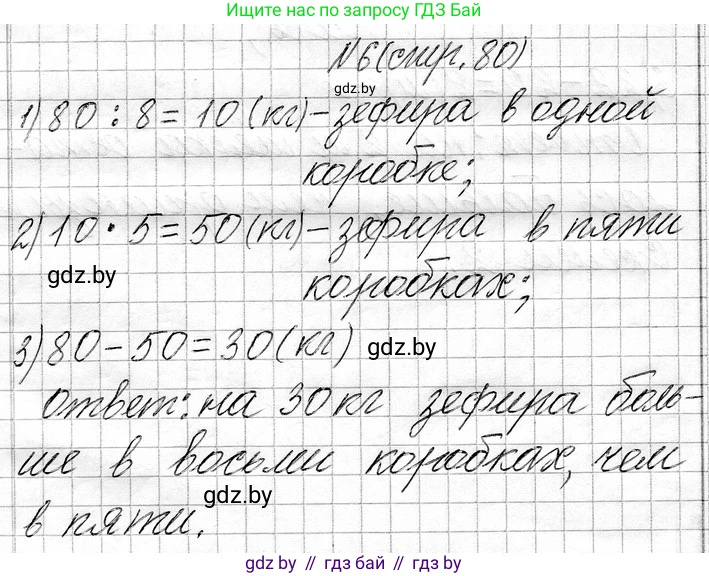 Ищите нас по запросу ГДЗ Бай
№6 (стр. 80)
gdz.by
1) 80 : 8 = 10 (кг) - зефира в одной
коробке;
2) 10 · 5 = 50 (кг) - зефира в пяти
gdz.by
коробках;
3) 80 - 50 = 30 (кг)
gdz.by
Ответ: на 30 кг зефира боль-
ше в восьми коробках, чем
gdz.by
в пяти.
gdz.by // гдз бай // gdz.by